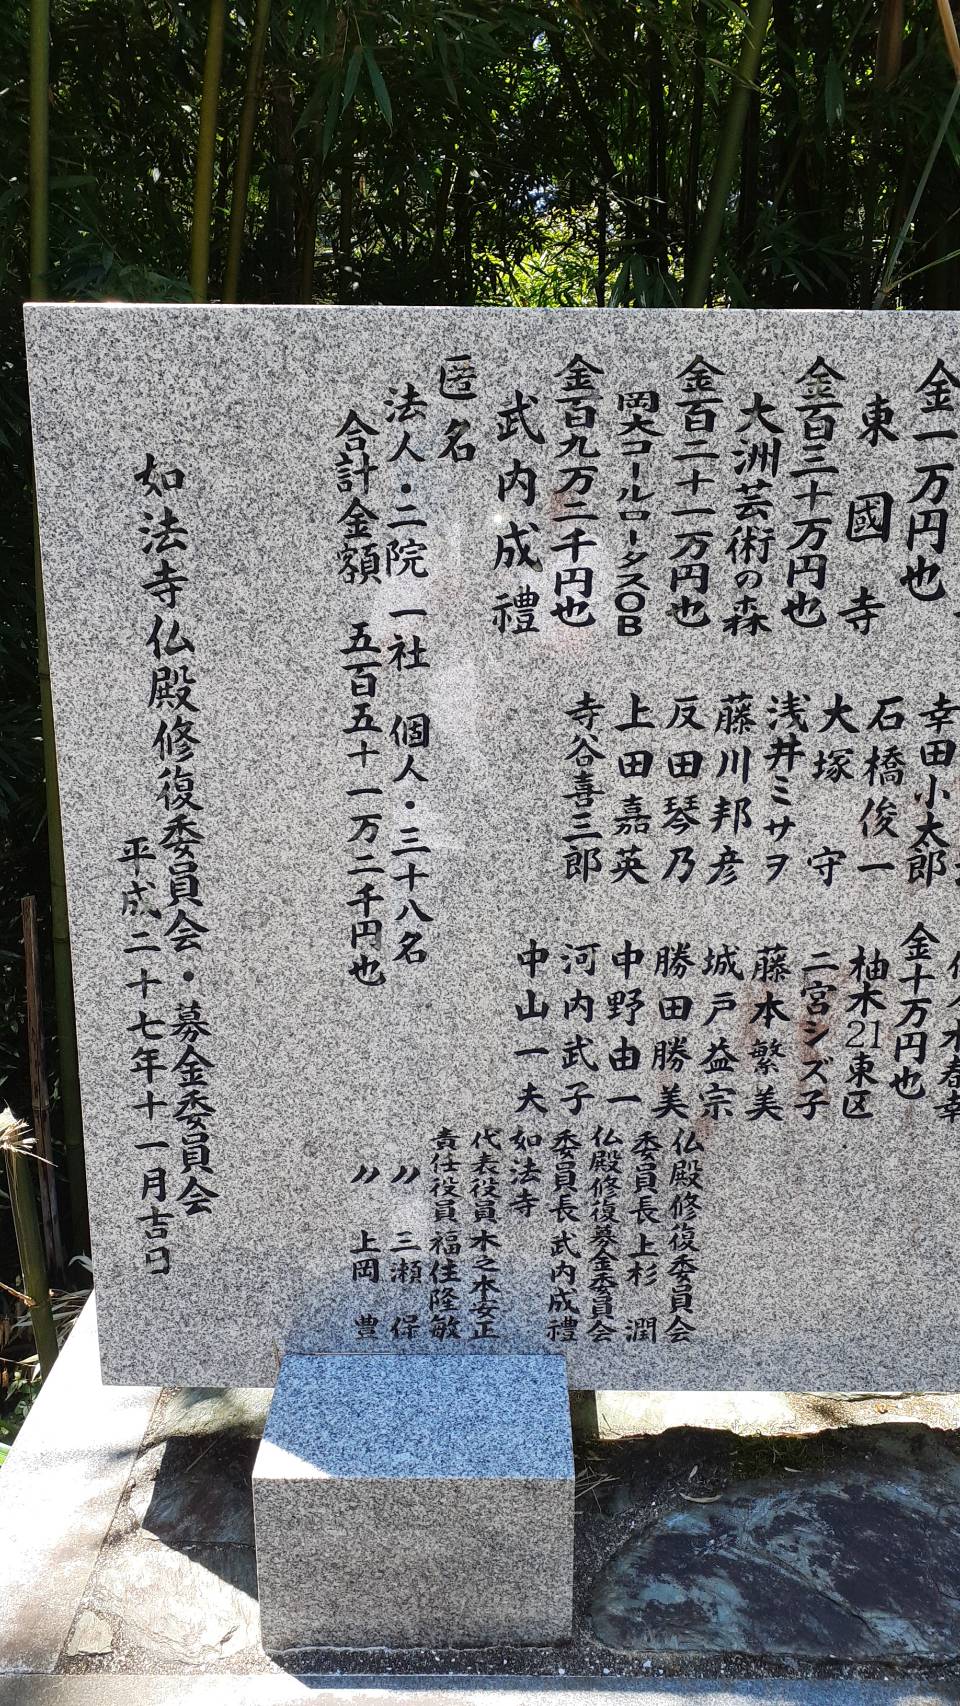 金一万円也
東國寺
金百三十万円也
大洲芸術の森
金百二十一万円也
岡大コールロータスOB
金百九万二千円也
武内成禮
匿名
幸田小太郎
石橋俊一
大塚守
浅井ミサヲ
藤川邦彦
反田琴乃
上田嘉英
寺谷喜三郎
金十万円也
柚木21東区
二宮シズ子
藤本繁美
城戸益宗
勝田勝美
中野由一
河内武子
中山一夫
仏殿修復委員会
委員長 上杉潤
仏殿修復募金委員会
委員長 武内成禮
如法寺
代表役員 木之本安正
責任役員 福住隆敏
〃 三瀬保
〃 上岡豊
法人・二院 一社 個人・三十八名
合計金額 五百五十一万二千円也
如法寺仏殿修復委員会・募金委員会
平成二十七年十一月吉日